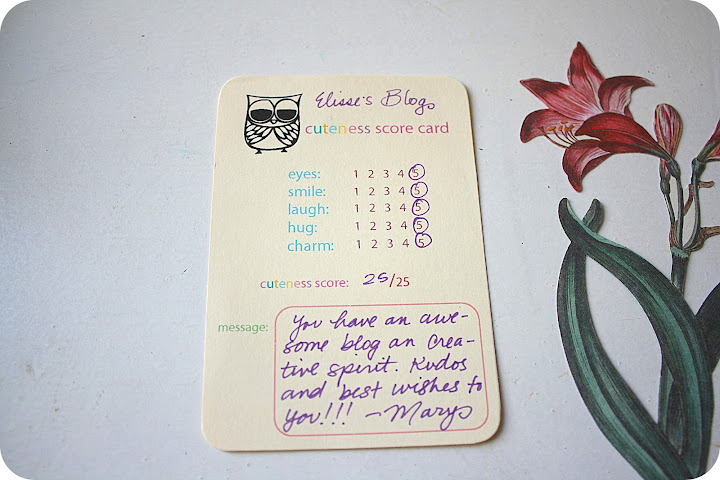 Elisse's Blog
cuteness score card
eyes: 1 2 3 4 5
smile: 1 2 3 4 5
laugh: 1 2 3 4 5
hug: 1 2 3 4 5
charm: 1 2 3 4 5
cuteness score: 25/25
message:
You have an awe-
some blog an crea-
tive spirit. Kudos
and best wishes to
you!!! - Marys